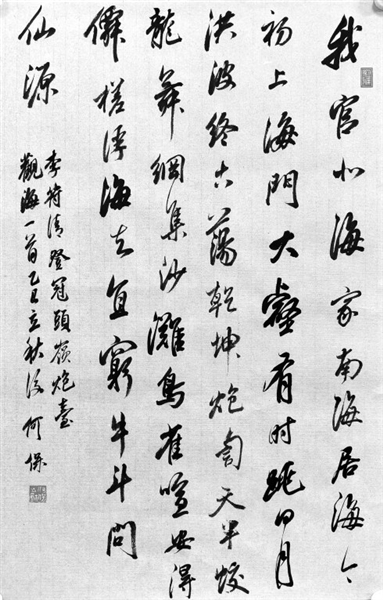 我官北海家南海居海今
初上海門大壑有时跳日月
洪波終古蕩乾坤炮訇天半蛟
龍舞網集沙灘鳥雀喧安得
僊槎浮海去直窮牛斗問
仙源
李符清登冠頭嶺炮臺
觀海一首乙巳立秋後何保